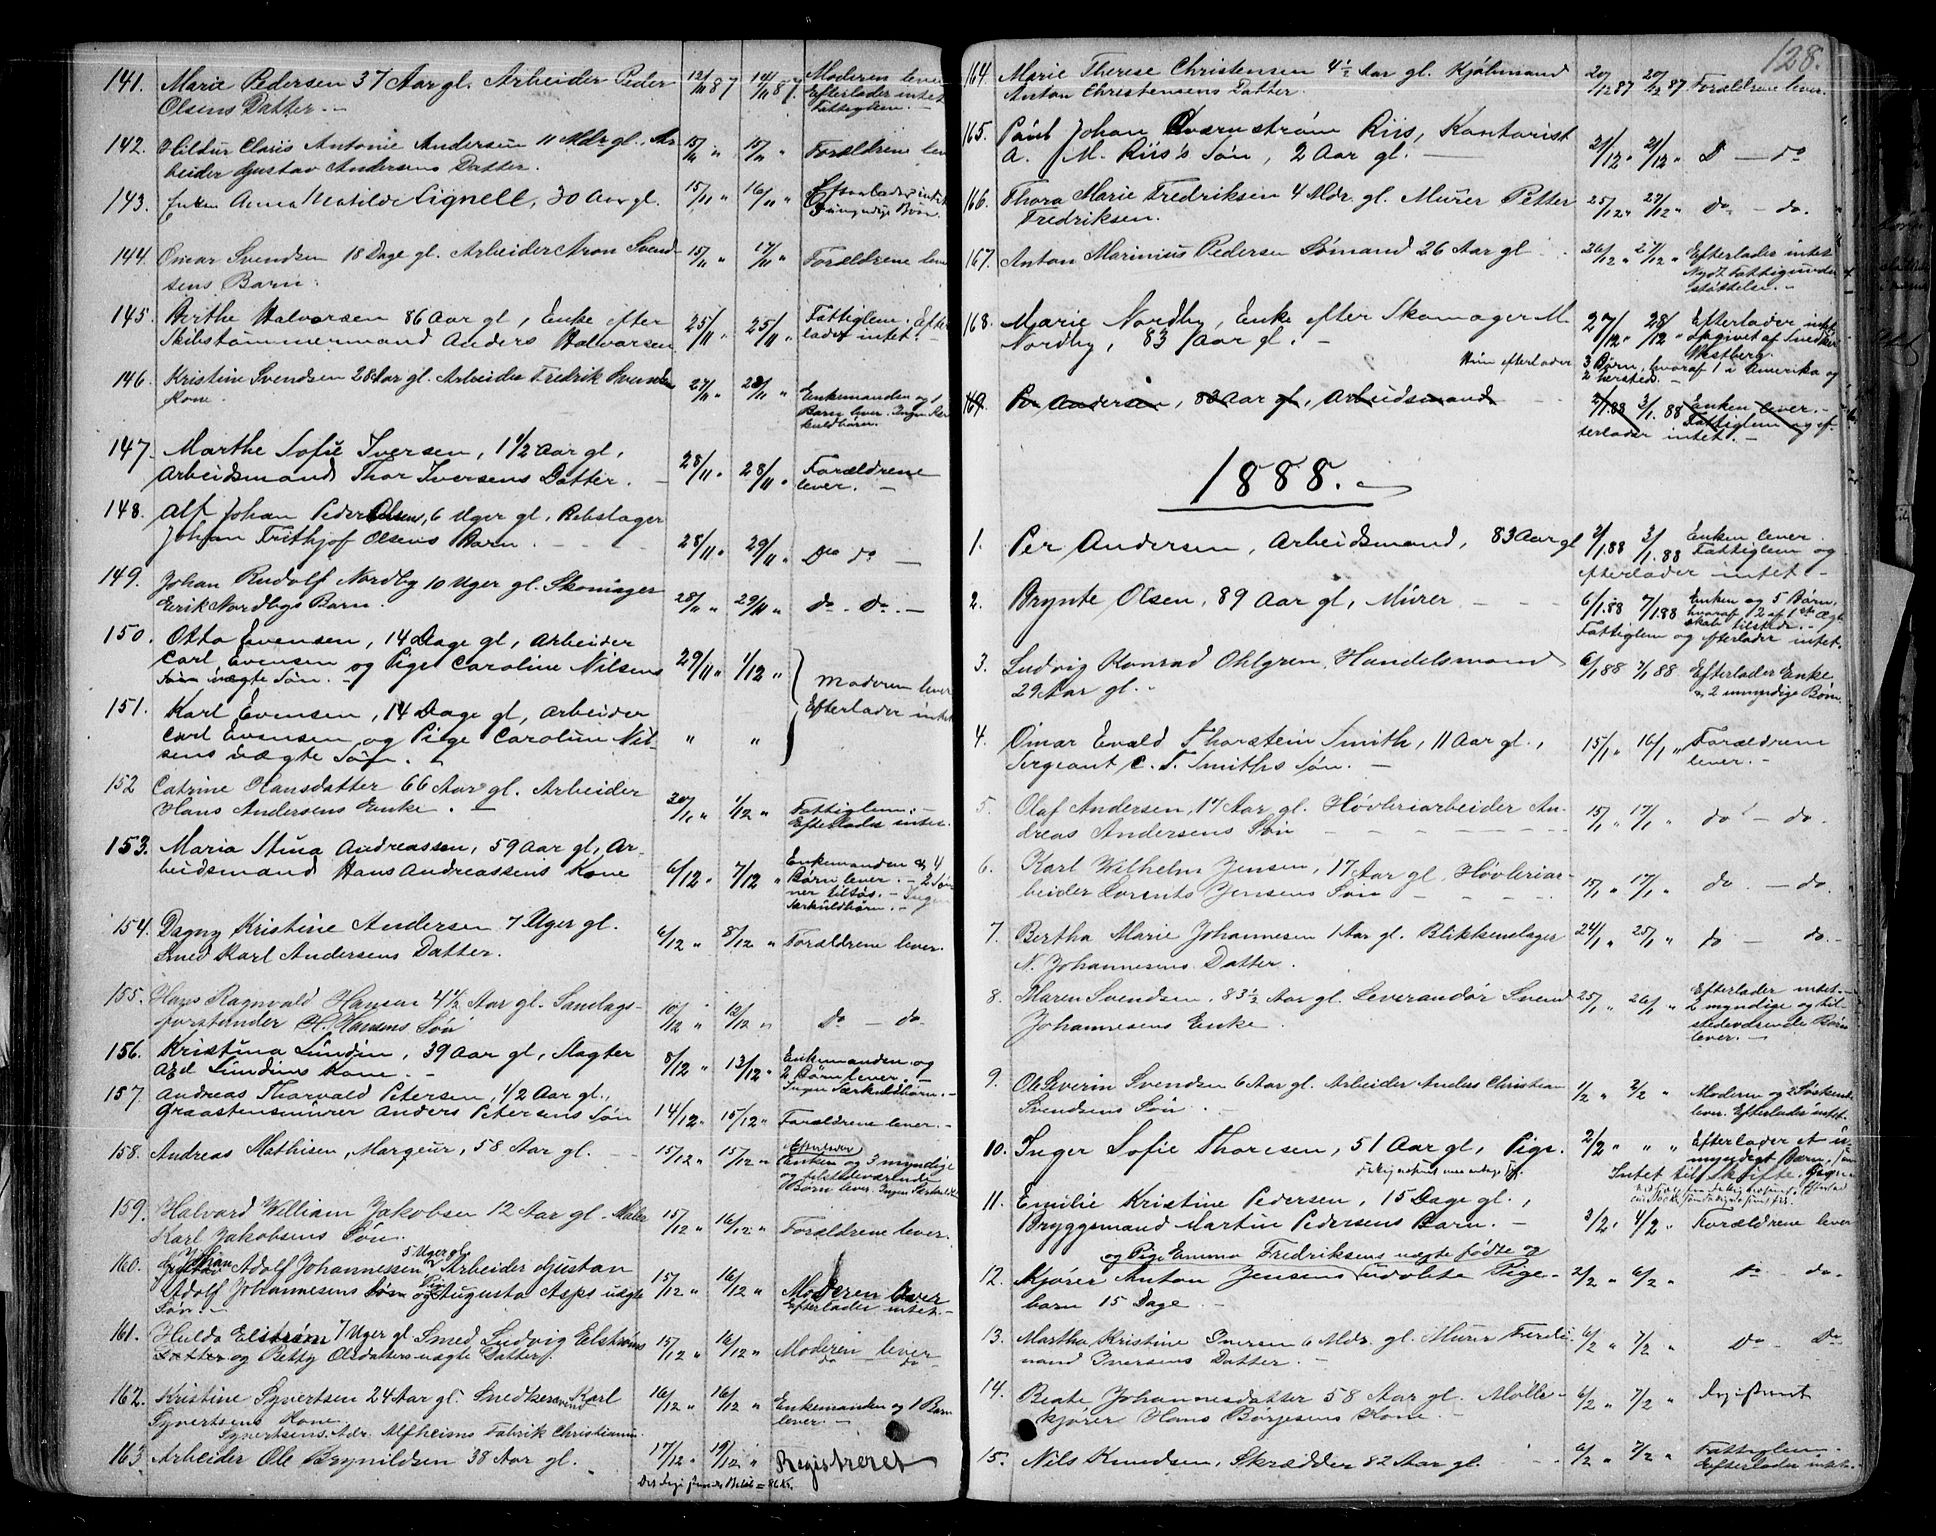 141. Marie Pedersen 37 Aar gl. Arbeider Peder 12/11 87 14/11 87. Moderen lever
Olsens Datter. — Efterlader intet
Fattiglem. —
142. Hildur Claus Antonie Andersen 11 Mdr gl. Ar- 15/11 " 15/11 " Forældrene lever
beider Gustav Andersens Datter.
143. Enken Anna Matilde Lignell, 30 Aar gl. 15/11 " 16/11 " Efterlader intet
umyndige Børn.
144. Omar Svendsen 18 Dage gl. Arbeider Aron Svend- 15/11 " 17/11 " Forældrene lever
sens Barn.
145. Berthe Halvorsen 86 Aar gl, Enke efter 25/11 " 25/11 " Fattiglem. Efter-
Skibstømmermand Anders Halvorsen lader intet. —
146. Kristine Svendsen 28 Aar gl. Arbeider Fredrik Svendsens 27/11 " 28/11 " Enkemanden og 1
Kone. Barn lever. Ingen Sær-
kuldbørn.
147. Marthe Sofie Iversen, 1 1/2 Aar gl, 28/11 " 28/11 " Forældrene
Arbeidsmand Thor Iversens Datter. — lever. —
148. Alf Johan Peder Olsen, 6 Uger gl. Rebslager
Johan Frithjof Olsens Barn. 28/11 " 29/11 " Do do —
149. Johan Rudolf Nordby 10 Uger gl. Skomager
Erik Nordbys Barn. 28/11 " 29/11 " Do. Do. —
150. Otto Evensen, 14 Dage gl, Arbeider
Carl Evensen og Pige Caroline Nilsens 29/11 " 1/12 " Moderen lever
Søn uægte Søn. —
151. Karl Evensen, 14 Dage gl, Arbeider Efterlader intet
Carl Evensen og Pige Caroline Nil- " "
sens uægte Søn. —
152 Catrine Hansdatter 66 Aar gl. Arbeider
Hans Andersens Enke. — 30/11 " 1/12 " Fattiglem. —
Efterlader intet.
153. Maria Stina Andreassen, 59 Aar gl, Ar-
beidsmand Hans Andreassens Kone 6/12 " 7/12 " Enkemanden & 4
Børn lever. — 2 Søn-
ner tilsøs. — Ingen
Særkuldbørn. —
154. Dagny Kristine Andersen 7 Uger gl. 6/12 " 8/12 " Forældrene lever.
Smed Karl Andersens Datter.
155. Hans Ragnvald Hansen 4 1/2 Aar gl.
forstander H. Hansens Søn 10/12 " 12/12 " Do — do
156. Kristina Lundin, 39 Aar gl, Slagter 8/12 " 13/12 " Enkemanden og
Axel Lundins Kone. — 2 Børn lever. —
Ingen Særkuldbørn. —
157. Andreas Thorvald Petersen, 1/2 Aar gl.,
Graastensmurer Anders Petersens Søn 14/12 " 15/12 " Forældrene lever. —
158. Andreas Mathisen, Margeur, 58 Aar gl. — 15/12 " 15/12 " Efterlader
Enken og 3 myndige
og tilstedeværende
Børn lever. Ingen Særkuldbørn
159. Halvard William Jakobsen 12 Aar gl. Maler 15/12 " 16/12 " Forældrene lever.
Karl Jakobsens Søn.
160. Gustav Johan Adolf Johannessen 5 Uger gl. Arbeider Gustav
Adolf Johannesens Søn og Pige Augusta Asps uægte 15/12 " 16/12 " Moderen lever
Søn. — Efterlader intet. —
161. Hulda Elstrøm 7 Uger gl. Smed Ludvig Elstrøms 15/12 " 16/12 " Moderen lever
Datter og Betty Olsdatters uægte Datter. do do
162. Kristine Syvertsen 24 Aar gl. Snedkersvend Karl 16/12 " 16/12 " Enkemanden og 1 Barn
Syvertsens Kone. lever. —
Syvertsens Adr. Alfheims Fabrik Christiania.
163. Arbeider Ole Brynildsen 38 Aar gl. 17/12 " 19/12 " Registreret
128.
164. Marie Therese Christensen 4 1/2 Aar gl. Kjøbmand 20/12 87 20/12 87 Forældrene lever.
Anton Christensens Datter.
165. Paul Johan Qvarnstrøm Riis, Kontorist
A. M. Riis's Søn, 2 Aar gl. — 21/12 " 21/12 " D — do
166. Thora Marie Fredriksen 4 Mdr. gl. Murer Petter 25/12 " 27/12 " Do — do.
Fredriksen.
167. Anton Marinius Pedersen Sømand 26 Aar gl 26/12 " 27/12 " Efterlader intet
Nydt Fattigunder-
støttelse. —
168. Marie Nordby, Enke efter Skomager M. 27/12 " 28/12 " Efterlader intet
Nordby, 83 Aar gl. — opgivet af Snedker
Westberg.
Hun efterlader 3 Børn, hvoraf 1 i Amerika og
2 hersteds. —
169. Per Andersen, 83 Aar gl, Arbeidsmand 2/1.88 3/1.88 Enken lever. —
Fattiglem og ef-
terlader intet. —
1888. —
1. Per Andersen, Arbeidsmand, 83 Aar gl 2/1.88 3/1.88 Enken lever.
Fattiglem og
efterlader intet —
2. Brynte Olsen, 89 Aar gl, Murer — — 6/1.88 7/1.88 Enken og 5 Børn,
hvoraf 2 af 1ste Ægte-
skab tilstede. —
Fattiglem og efterlader intet.
3. Ludvig Konrad Ohlgren, Handelsmand 6/1 88 7/1 88 Efterlader Enke
29 Aar gl. & 2 umyndige Børn.
4. Omar Evald Thorstein Smith, 11 Aar gl, 15/1 " 16/1 " Forældrene
Sergeant C. F. Smiths Søn. — lever. —
5. Olaf Andersen, 17 Aar gl. Høvleriarbeider An- 15/1 " 17/1 " do — do.
dreas Andersens Søn
6. Karl Wilhelm Jensen, 17 Aar gl. Høvleriar-
beider Lorents Jensens Søn 15/1 " 17/1 " do — do.
7. Bertha Marie Johannesen 1 Aar gl. Blikkenslager 24/1 " 25/1 " do — do. —
N. Johannesens Datter.
8. Maren Svendsen, 83 1/2 Aar gl. Leverandør Svend 25/1 " 26/1 " Efterlader intet. —
Johannesens Enke. 2 myndige og til-
stedeværende Børn
lever. —
9. Ole Severin Svendsen 6 Aar gl. Arbeider Anders Christian 1/2 " 2/2 " Moderen og 2 Søskende
Svendsens Søn. — lever. Efterlader intet.
10. Inger Sofie Thoresen, 51 Aar gl, Pige 2/2 " " " Efterlader et u-
myndigt Barn,
Intet til Skifte.
11. Emilie Kristine Pedersen, 15 Dage gl,
Bryggemand Martin Pedersens Barn. — 3/2 " 4/2 " Forældrene lever
og Pige Emma Fredriksens uægte fødte og
12. Kjører Anton Jensens udøbte Pige- 2/2 " 6/2 " Do — do.
barn 15 Dage. —
13. Martha Kristine Iversen 6 Mdr. gl. Murer Ferdi- 6/2 " 7/2 " Do — Do
nand Iversens Datter. —
14. Beate Johannesdatter 58 Aar gl. Mølle- 6/2 " 7/2 " Registreret
kjører Hans Børjesens Kone. —
15. Nils Knudsen, Skrædder 82 Aar gl. 6/2 " 7/2 " Fattiglem —
Efterlader intet. —